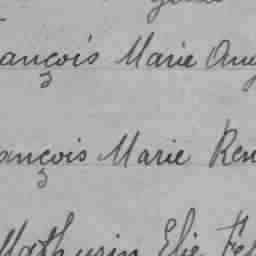 ançois Marie Aug
ançois Marie Ren
Mathurin Elie Fé